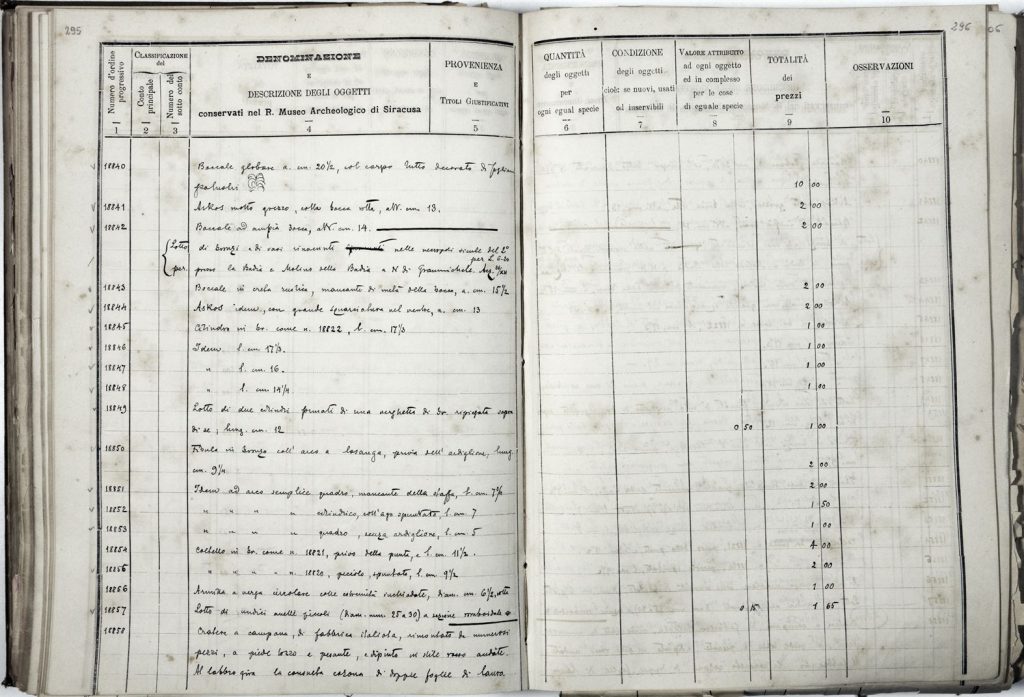 295
Numero d'ordine progressivo
CLASSIFICAZIONE del
Conto principale
Numero del sotto conto
DENOMINAZIONE
E
DESCRIZIONE DEGLI OGGETTI
conservati nel R. Museo Archeologico di Siracusa
PROVENIENZA
E
TITOLI GIUSTIFICATIVI
1 2 3 4 5
18840 Boccale globare a. cm. 20 1/2, col corpo tutto decorato di
palustri
18841 Askos molto grezzo, colla bocca rotta, alt. cm. 13.
18842 Boccale ad ampia bocca, alt. cm. 14.
Lotto di bronzi e di vasi rinvenuti nelle necropoli sicule del
per. presso la Badia e Molino della Badia a N di Grammichele.
18843 Boccale in creta rustica, mancante di metà della bocca, a. cm. 15 1/2
18844 Askos idem, con grande squarciatura nel ventre, a. cm. 13
18845 Cilindro in br. come n. 18822, l. cm. 17
18846 Idem l. cm. 17
18847 " l. cm. 16.
18848 " l. cm. 14 1/4
18849 Lotto di due cilindri formati di una verghetta di br. ripiegata sopra
di se, lung. cm. 12
18850 Fibula in bronzo coll' arco a losanga, priva dell' ardiglione, lung.
cm. 9
18851 Idem ad arco semplice quadro, mancante della staffa, l. cm. 7
18852 " " " " cilindrico, coll'ago spuntato, l. cm. 7
18853 " " " " quadro, senza ardiglione, l. cm. 5
18854 Coltello in br. come n. 18821, privo della punta, l. cm. 11 1/2.
18855 " " " " n. 18820, piccolo, spuntato, l. cm. 9 1/2
18856 Armilla a verga circolare colle estremità diam. cm. 6 1/2, rotta
18857 Lotto di undici anelli piccoli (diam. mm. 25 a 30) a sezione romboidale
18858 Cratere a campana, di fabbrica italiota, rimontato da numerosi
pezzi, a piede tozzo e pesante, e dipinto in stile rosso andate.
Al labbro gira la consueta corona di doppie foglie di lauro
296
QUANTITÀ
degli oggetti
per
ogni egual specie
CONDIZIONE
degli oggetti
cioè: se nuovi, usati
od inservibili
VALORE ATTRIBUITO
ad ogni oggetto
ed in complesso
per le cose
di eguale specie
TOTALITÀ
dei
prezzi
OSSERVAZIONI
6 7 8 9 10
10 00
2 00
2 00
2 00
2 00
1 00
1 00
1 00
1 00
0 50 1 00
2 00
2 00
1 50
1 00
4 00
2 00
1 00
0 15 1 65